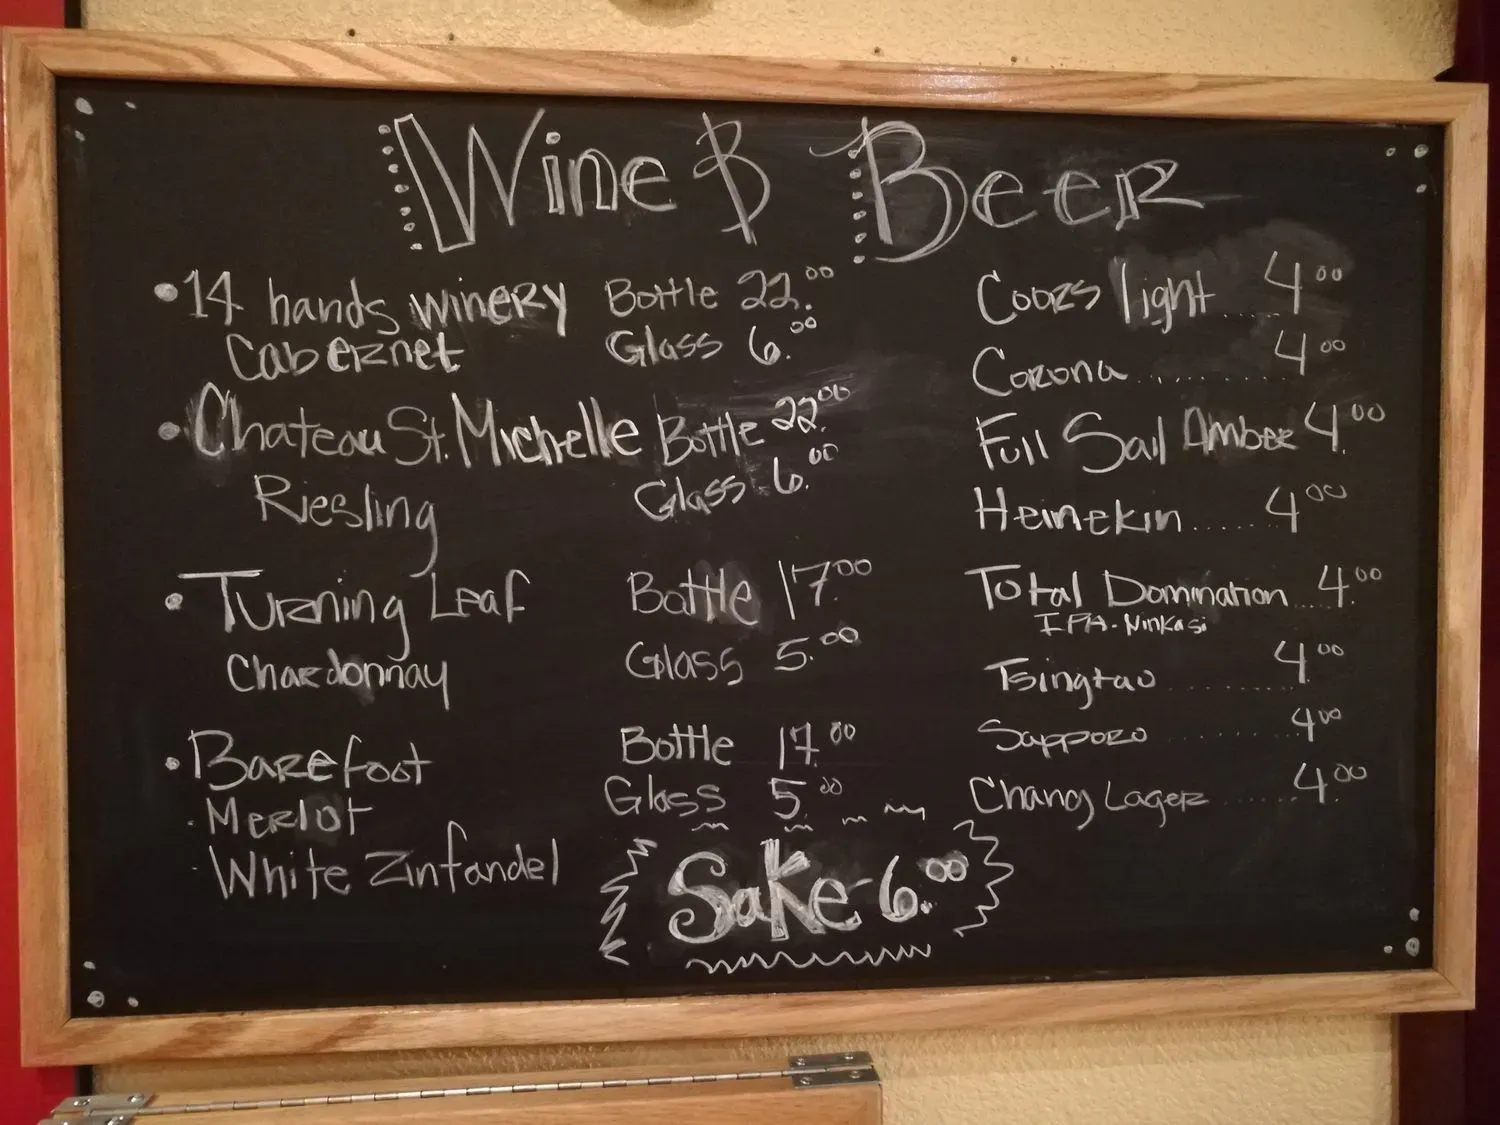 Wine & Beer
• 14 hands winery Bottle 22.00
Cabernet Glass 6.00
• Chateau St. Michelle Bottle 22.00
Riesling Glass 6.00
• Turning Leaf Bottle 17.00
Chardonnay Glass 5.00
• Barefoot Bottle 17.00
· Merlot Glass 5.00
· White Zinfandel
Sake-6.00
Coors light ..... 4.00
Corona .......... 4.00
Full Sail Amber 4.00
Heinekin ...... 4.00
Total Domination ... 4.00
IPA - Ninkasi
Tsingtao .......... 4.00
Sapporo .......... 4.00
Chang Lager ...... 4.00